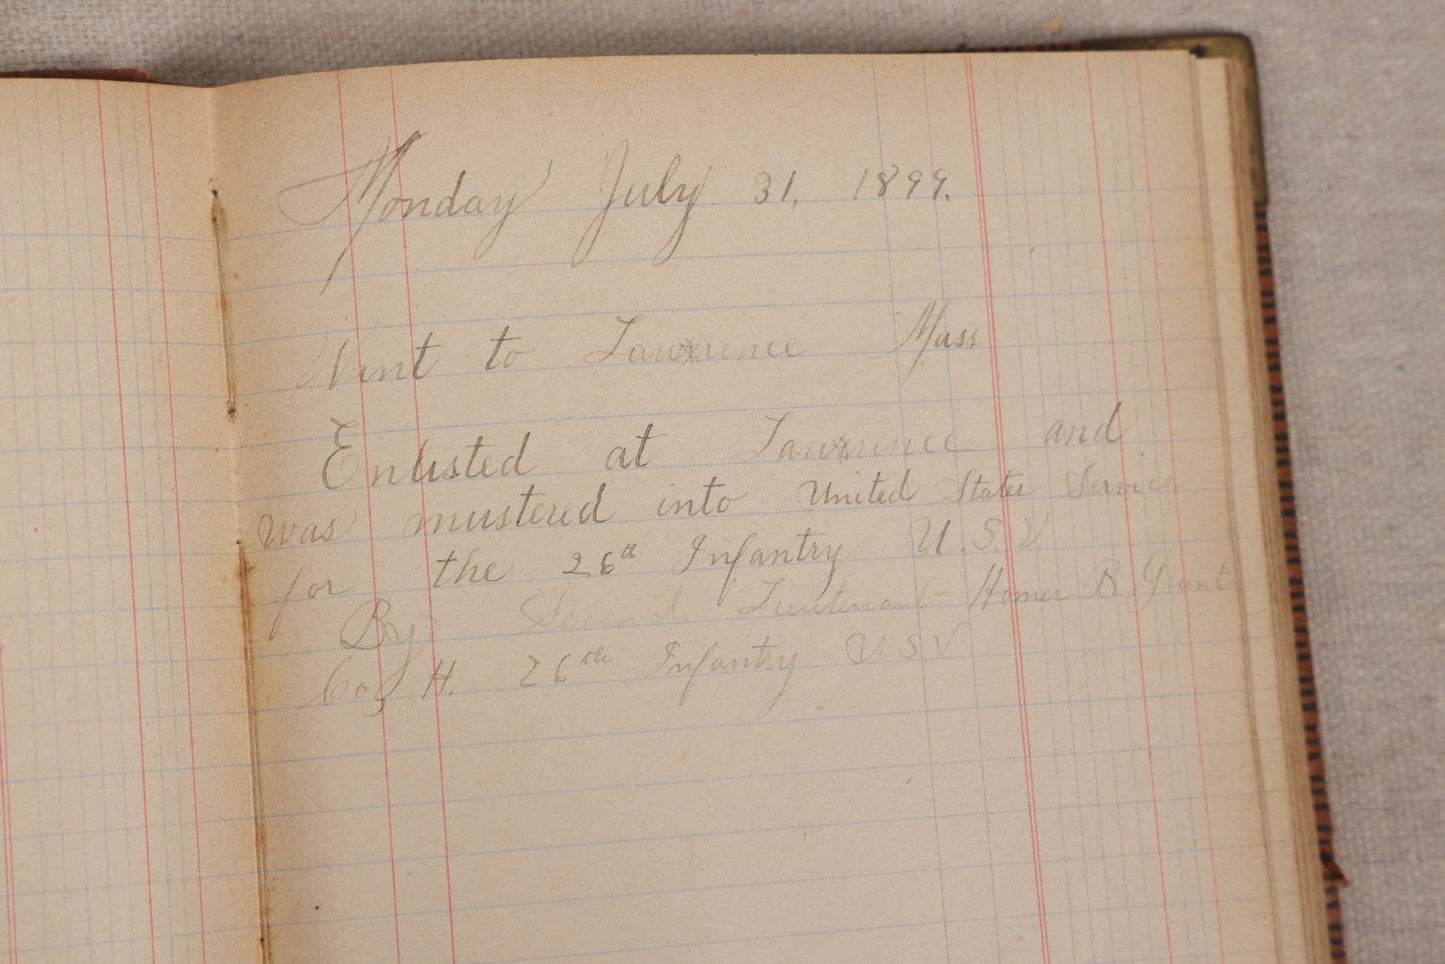 Monday July 31, 1899.
Went to Lawrence Mass
Enlisted at Lawrence and
was mustered into United States Service
for the 26th Infantry U.S.V
By Second Lieutenant Homer B. Grant
Co, H. 26th Infantry U S V